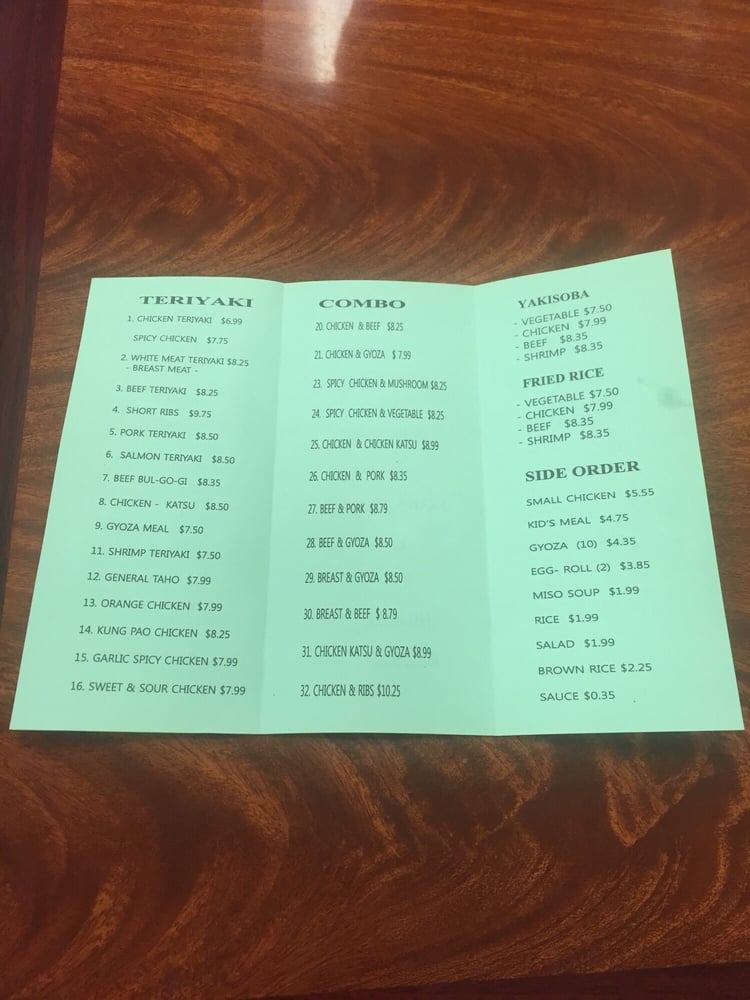 TERIYAKI
1. CHICKEN TERIYAKI $6.99
SPICY CHICKEN $7.75
2. WHITE MEAT TERIYAKI $8.25
- BREAST MEAT -
3. BEEF TERIYAKI $8.25
4. SHORT RIBS $9.75
5. PORK TERIYAKI $8.50
6. SALMON TERIYAKI $8.50
7. BEEF BUL-GO-GI $8.35
8. CHICKEN - KATSU $8.50
9. GYOZA MEAL $7.50
11. SHRIMP TERIYAKI $7.50
12. GENERAL TAHO $7.99
13. ORANGE CHICKEN $7.99
14. KUNG PAO CHICKEN $8.25
15. GARLIC SPICY CHICKEN $7.99
16. SWEET & SOUR CHICKEN $7.99
COMBO
20. CHICKEN & BEEF $8.25
21. CHICKEN & GYOZA $ 7.99
23. SPICY CHICKEN & MUSHROOM $8.25
24. SPICY CHICKEN & VEGETABLE $8.25
25. CHICKEN & CHICKEN KATSU $8.99
26. CHICKEN & PORK $8.35
27. BEEF & PORK $8.79
28. BEEF & GYOZA $8.50
29. BREAST & GYOZA $8.50
30. BREAST & BEEF $ 8.79
31. CHICKEN KATSU & GYOZA $8.99
32. CHICKEN & RIBS $10.25
YAKISOBA
- VEGETABLE $7.50
- CHICKEN $7.99
- BEEF $8.35
- SHRIMP $8.35
FRIED RICE
- VEGETABLE $7.50
- CHICKEN $7.99
- BEEF $8.35
- SHRIMP $8.35
SIDE ORDER
SMALL CHICKEN $5.55
KID'S MEAL $4.75
GYOZA (10) $4.35
EGG- ROLL (2) $3.85
MISO SOUP $1.99
RICE $1.99
SALAD $1.99
BROWN RICE $2.25
SAUCE $0.35